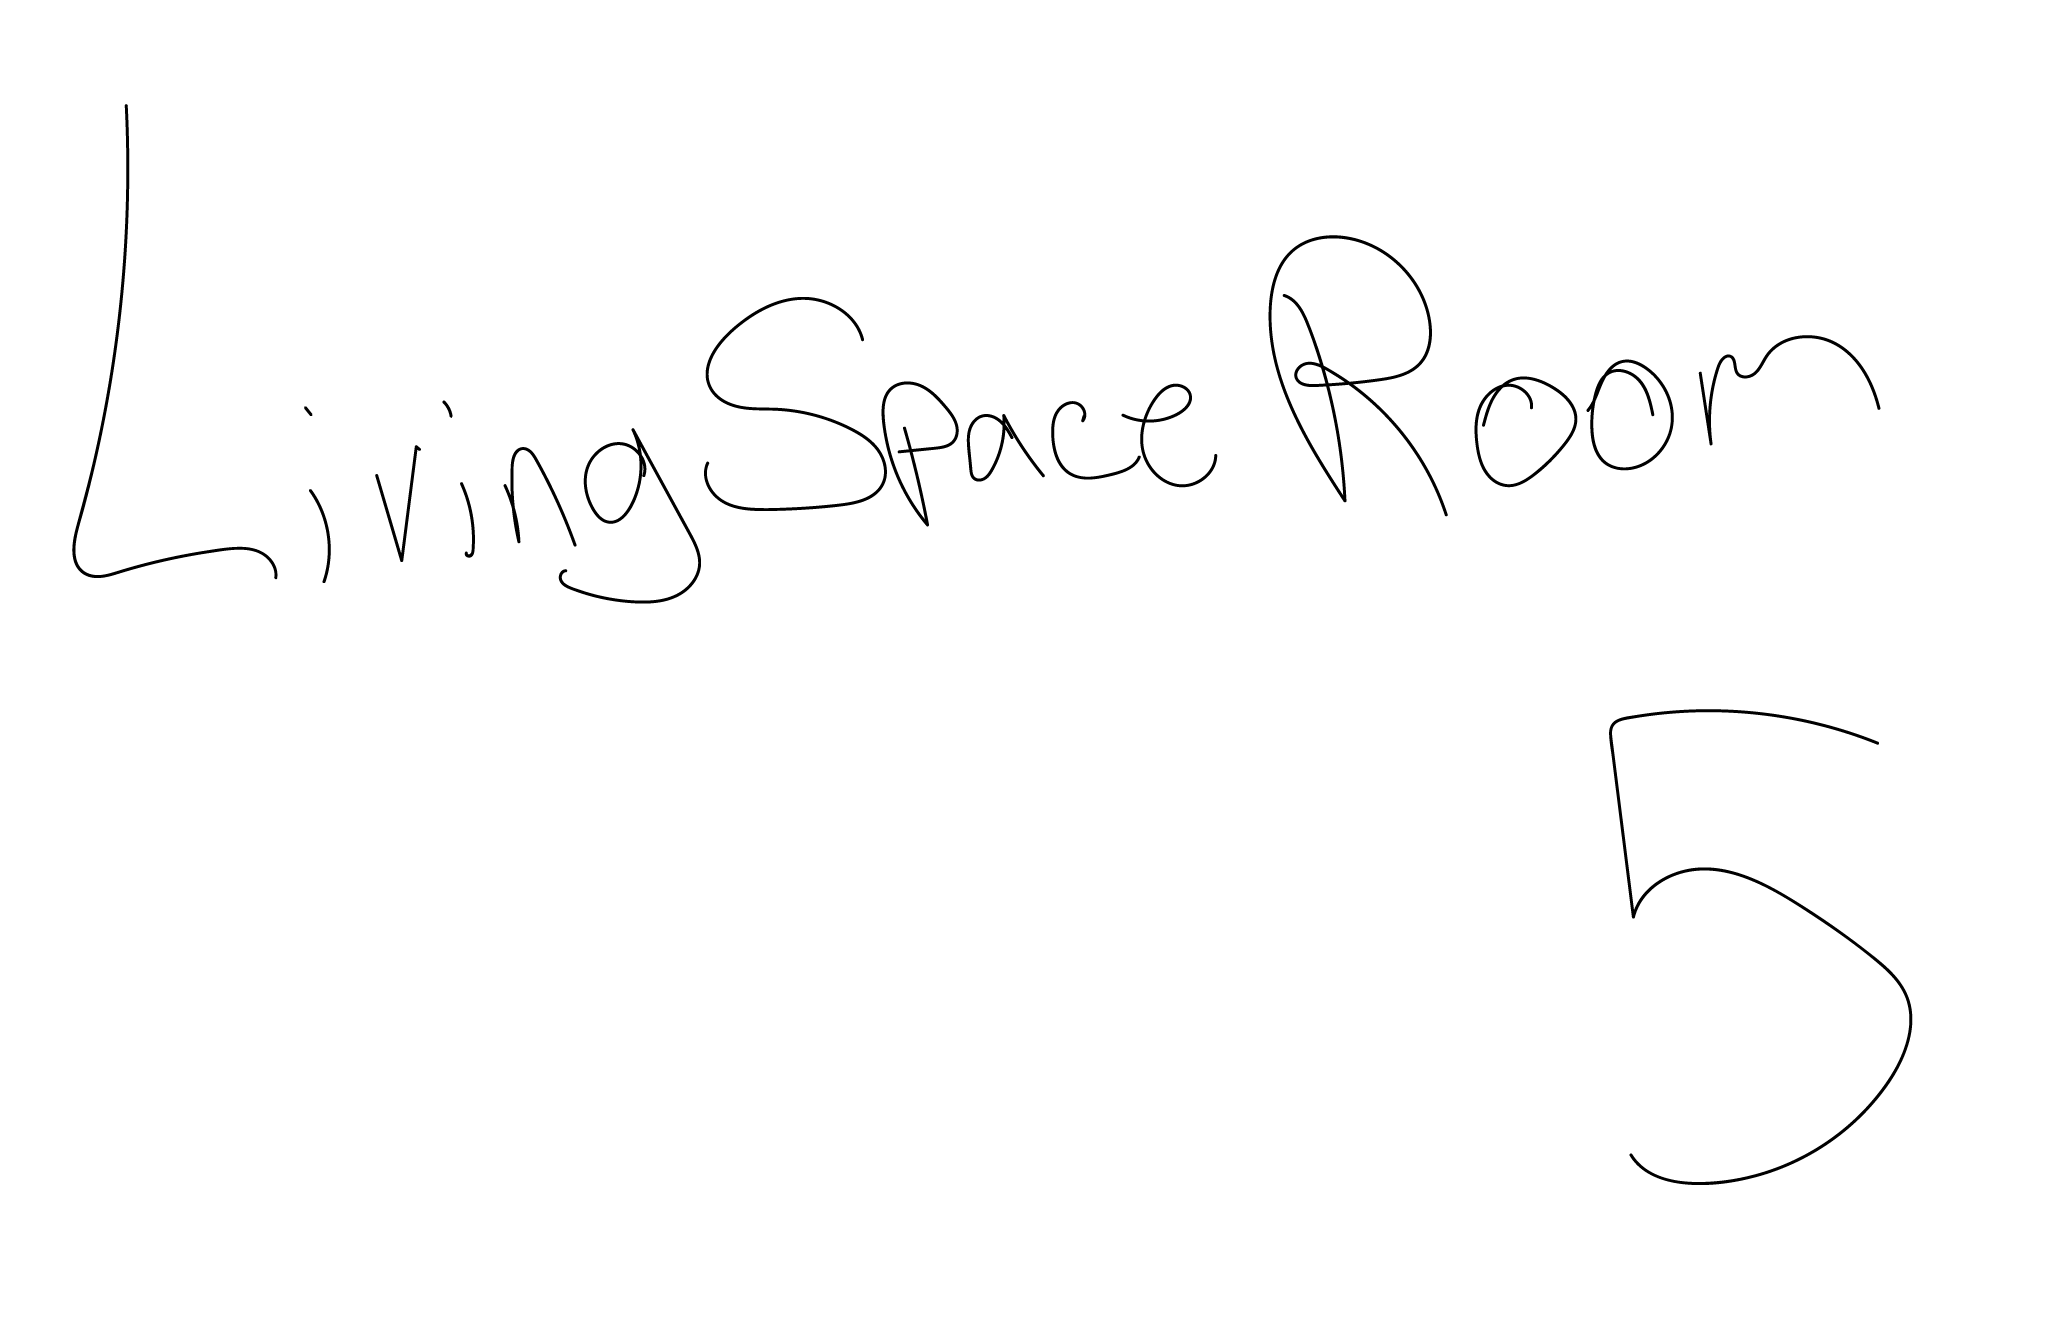 Living Space Room
5